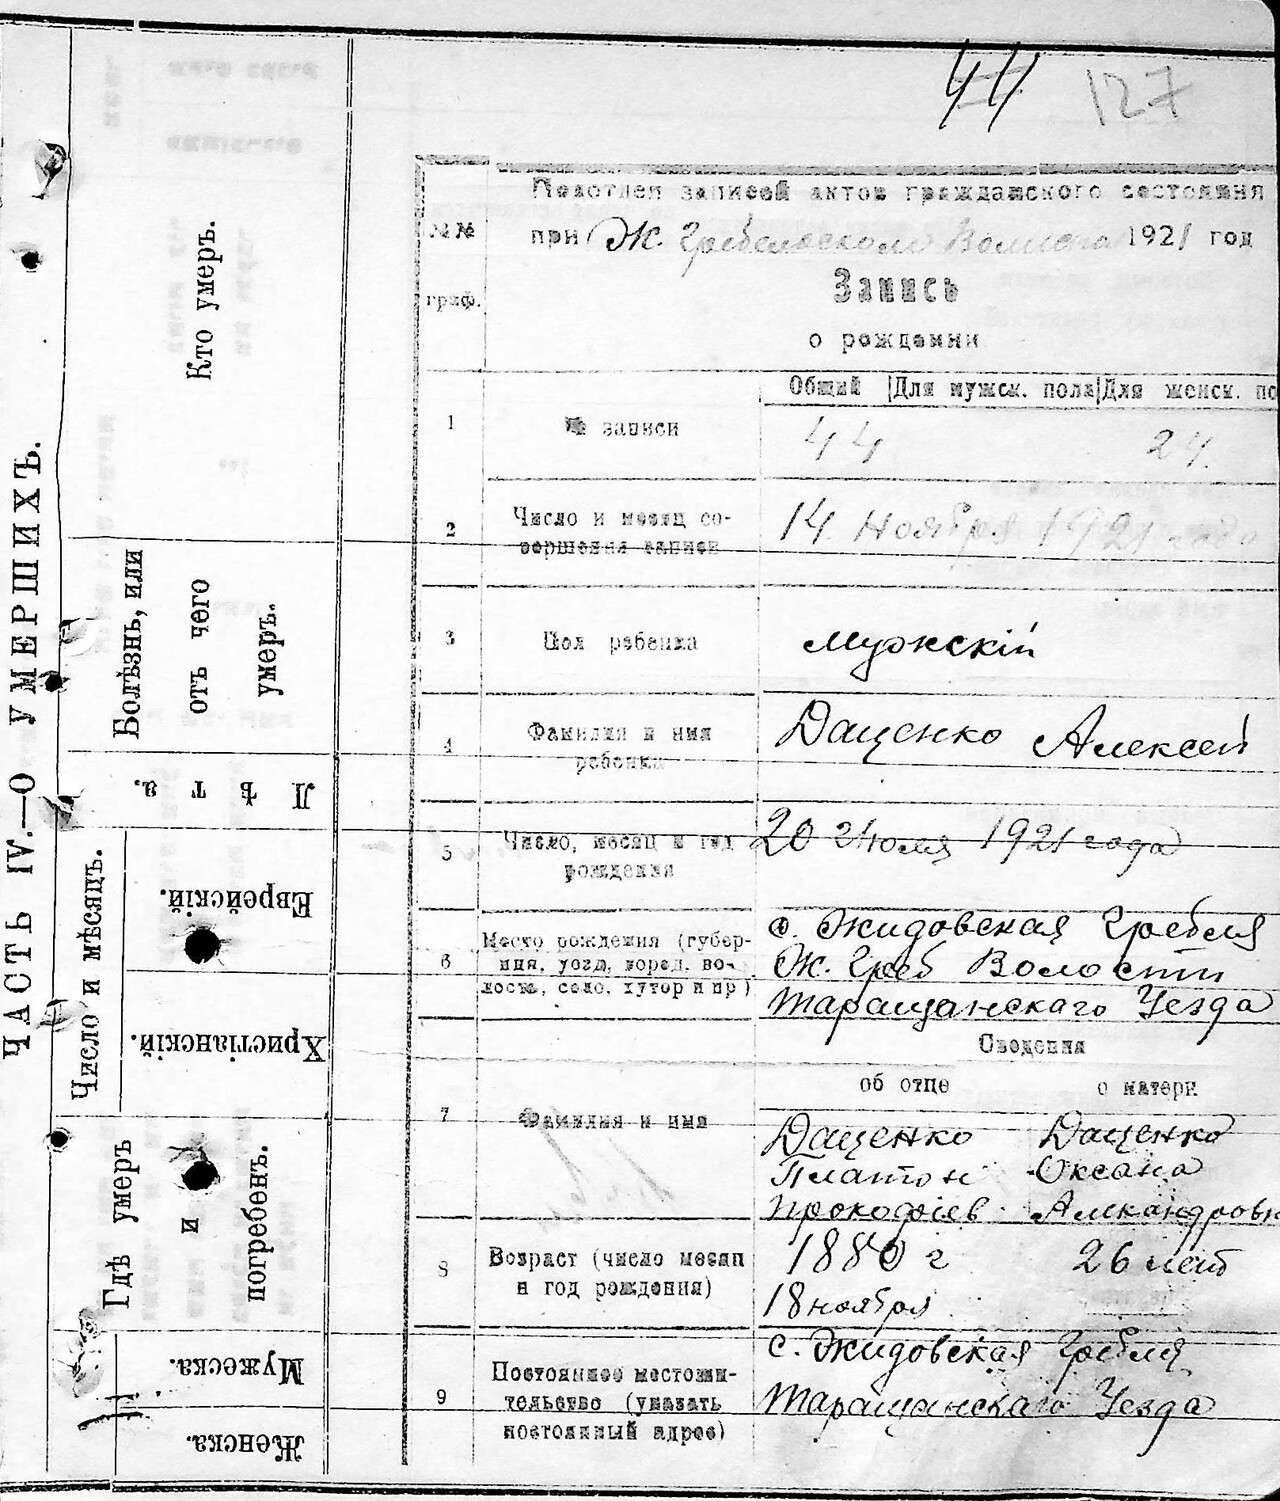 44 127
Подотдел записей актов гражданского состояния
при Ж. Гребельском 1921 год
№№
граф.
Запись
о рождении
Общий Для мужск. пола Для женск. по
1 № записи 44 24.
2 Число и месяц со-
вершения записи 14 Ноября 1921
3 Пол ребенка Мужскій
4 Фамилия и имя
ребенка Даценко Алексей
5 Число, месяц и год
рождения 20 Июля 1921 года
6 Место рождения (губер-
ния, уезд, город, во-
лость, село, хутор и пр)
с. Жидовская Гребля
Ж. Греб Волости
Таращанскаго Уезда
Сведения
об отце о матери
7 Фамилия и имя
Даценко Даценко
Платон Оксана
Прокофіев
8 Возраст (число месяц
и год рождения)
1880 г 26 лет
18 ноября
9 Постоянное местожи-
тельство (указать
постоянный адрес)
с. Жидовская Гребля
Таращанскаго Уезда
ЧАСТЬ IV.—О УМЕРШИХЪ.
Кто умеръ.
Болѣзнь, или
отъ чего
умеръ.
Лѣта.
Число и мѣсяцъ.
Еврейскій.
Христіанскій.
Гдѣ умеръ
и
погребенъ.
Мужеска.
Женска.